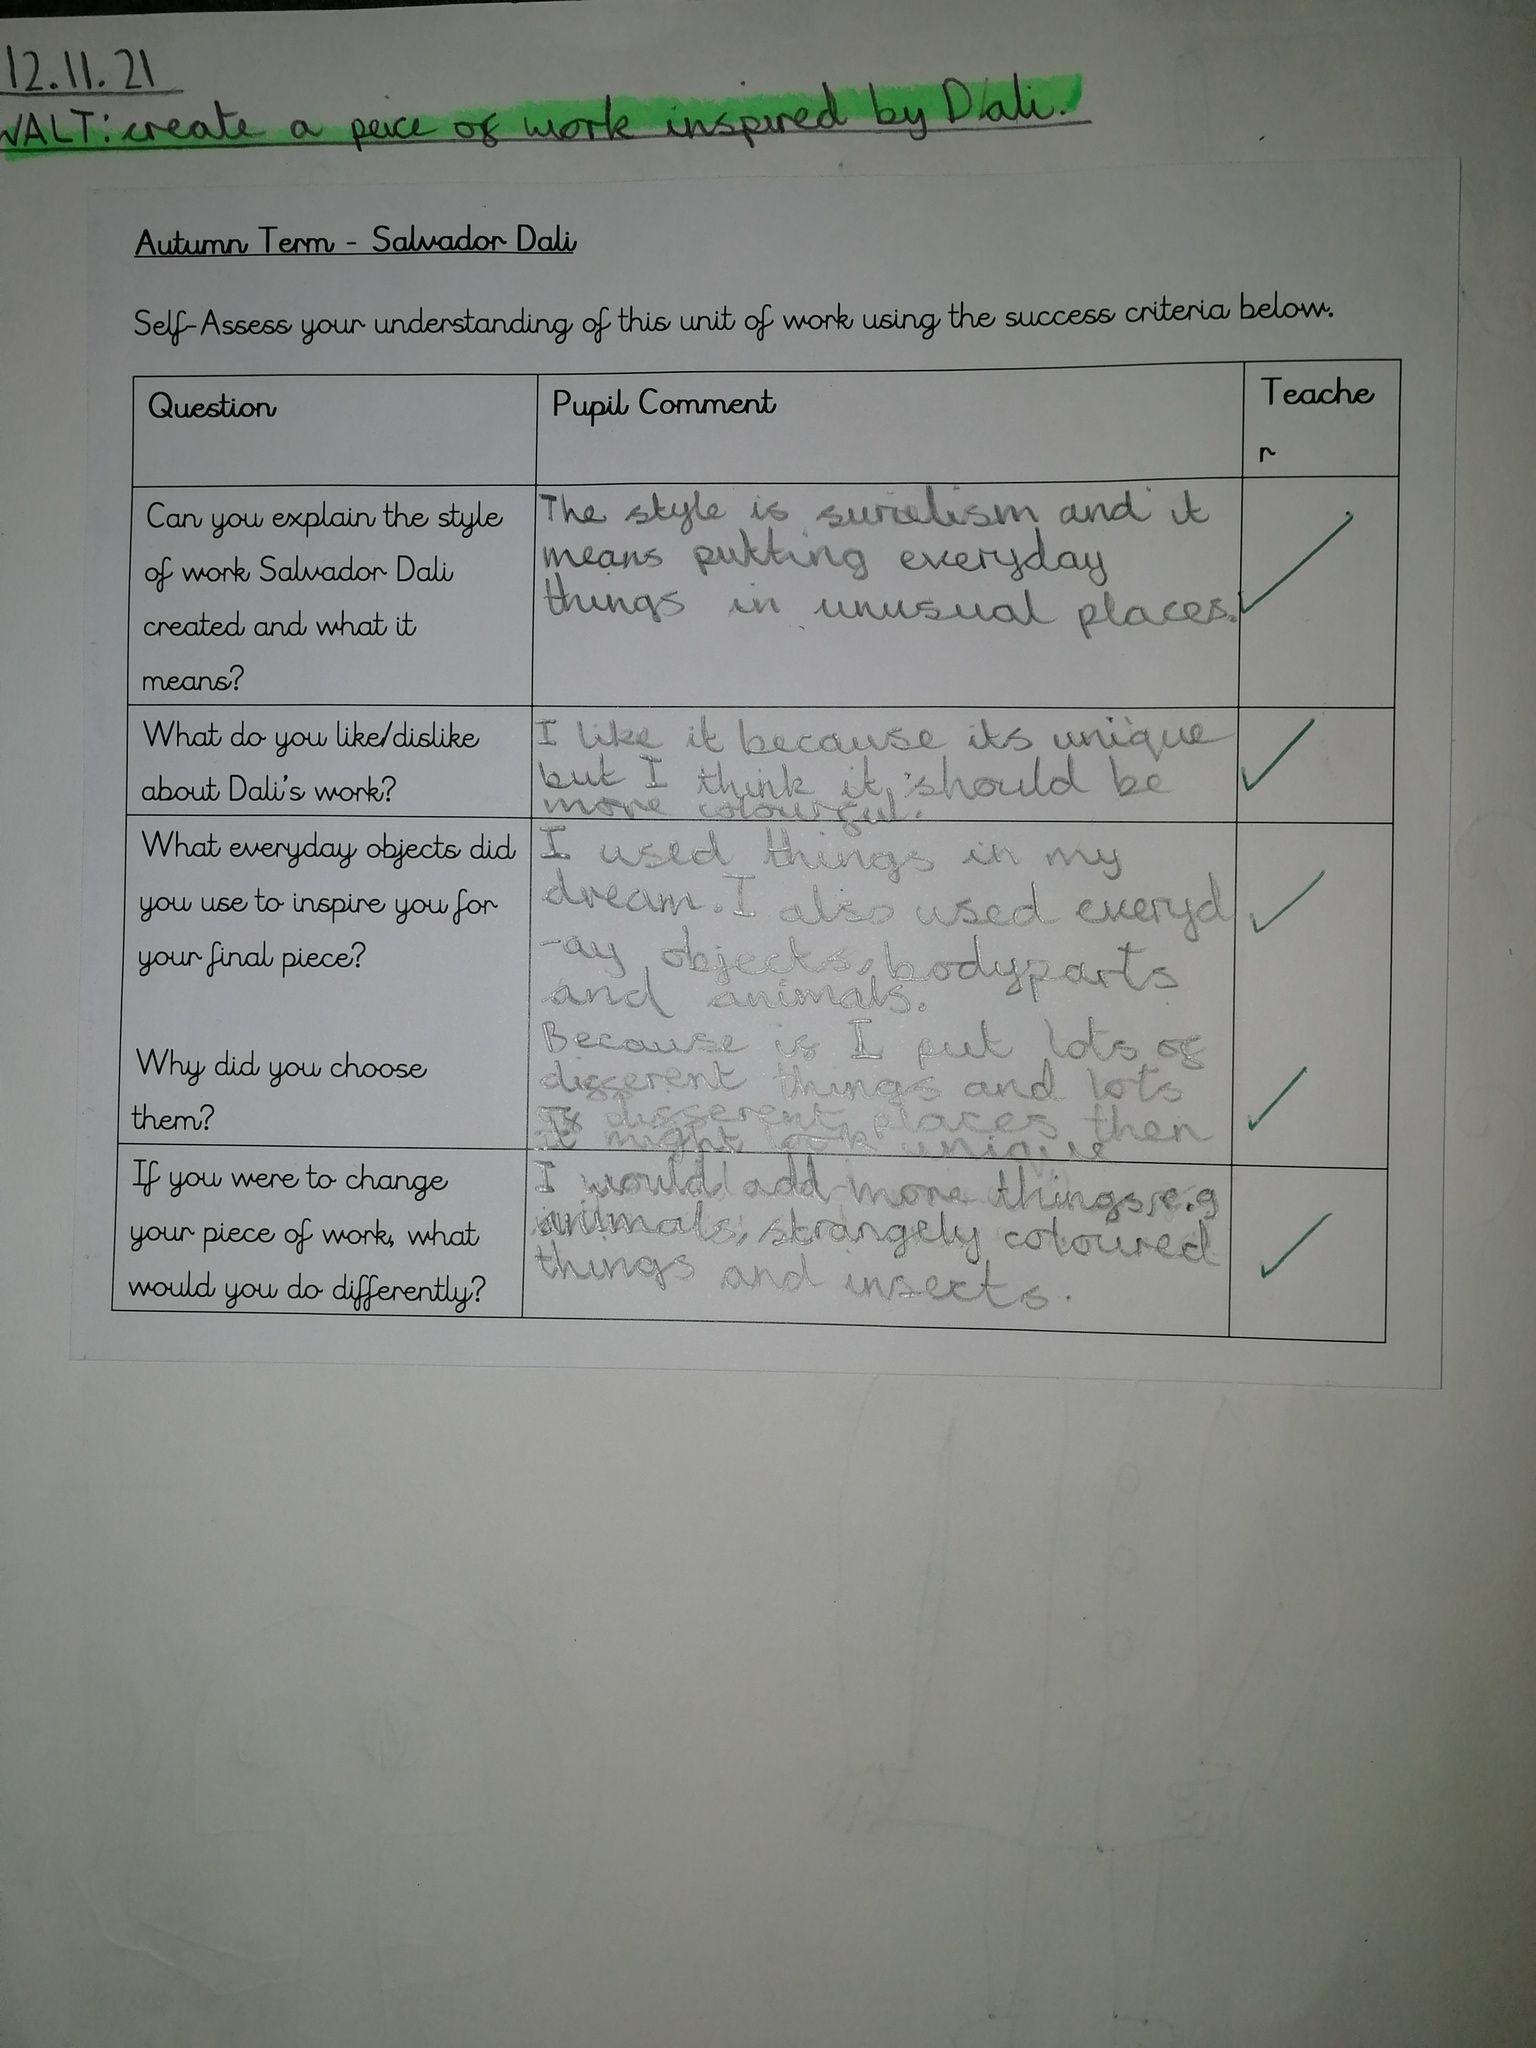 12.11.21
WALT: create a peice of work inspired by Dali.
Autumn Term - Salvador Dali
Self-Assess your understanding of this unit of work using the success criteria below.
Question
Pupil Comment
Teache
r
Can you explain the style
of work Salvador Dali
created and what it
means?
The style is surielism and it
means putting everyday
things in unusual places.
What do you like/dislike
about Dali's work?
I like it because its unique
but I think it should be
more colourful.
What everyday objects did
you use to inspire you for
your final piece?
I used things in my
dream. I also used everyd
-ay objects, bodyparts
and animals.
Why did you choose
them?
Because is I put lots of
different things and lots
of different places then
it might look unique
If you were to change
your piece of work, what
would you do differently?
I would add more things, e.g
animals, strangely coloured
things and insects.